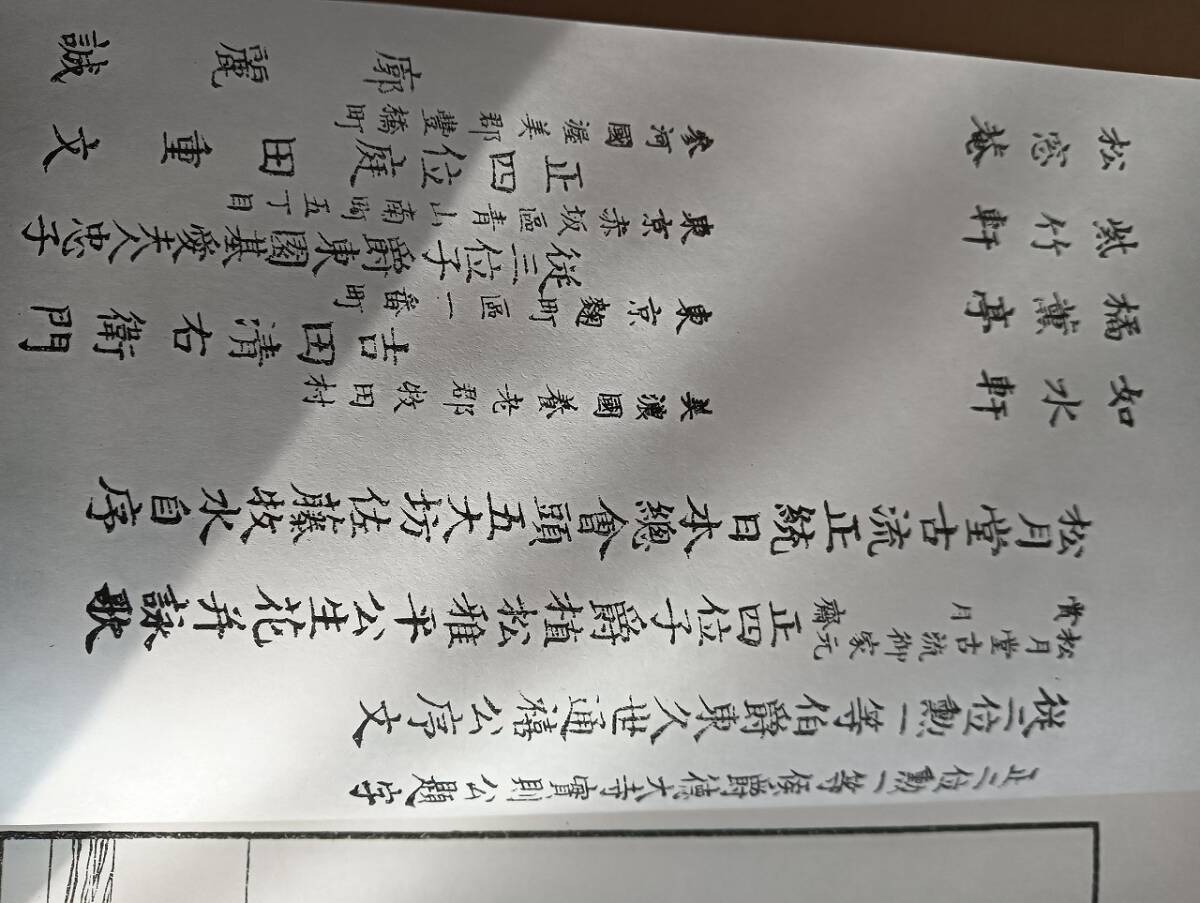 正二位勳一等侯爵德大寺實則公題字
從二位勳一等伯爵東久世通禧公序文
松月堂古流御家元
賞月齋
正四位子爵植松雅平公生花并詠歌
松月堂古流正統日本總會頭五大坊佐藤牧水自序
如水軒
美濃國養老郡牧田村
吉田清右衛門
橘薫亭
東京麴町區一番町
從三位子爵東園基愛夫人忠子
紫竹軒
東京赤坂區青山南町五丁目
正四位庭田重文
松窓菴
參河國渥美郡豐橋町
廓麗誠